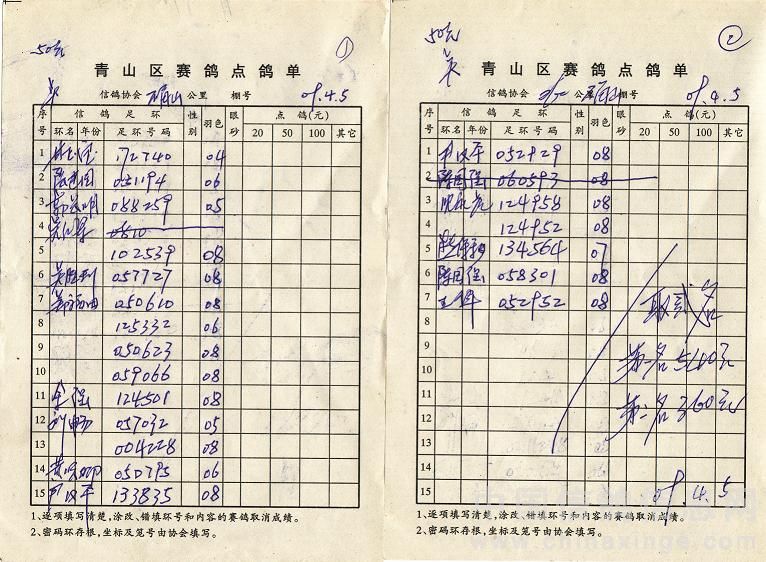 50元
①
青山区赛鸽点鸽单
信鸽协会 确山 公里 棚号 09.4.5
序号 信鸽足环 性别 羽色 眼砂 点鸽(元)
环名 年份 足环号码 20 50 100 其它
1 172740 04
2 051194 06
3 088259 05
4
5 102539 08
6 吴胜利 057727 08
7 050610 08
8 125332 06
9 050623 08
10 059066 08
11 余强 124501 08
12 刘畅 057032 05
13 004228 08
14 050795 06
15 133835 08
1、逐项填写清楚，涂改、错填环号和内容的赛鸽取消成绩。
2、密码环存根，坐标及笼号由协会填写。
50元
②
青山区赛鸽点鸽单
信鸽协会 公里 确山 棚号 09.4.5
序号 信鸽足环 性别 羽色 眼砂 点鸽(元)
环名 年份 足环号码 20 50 100 其它
1 052929 08
2 陈国强 060593 08
3 124958 08
4 124952 08
5 134564 07
6 陈国强 058301 08
7 052952 08
8
9
10
11
12
13
14
15
取贰名
第一名 540元
第二名 360元
09.4.5
1、逐项填写清楚，涂改、错填环号和内容的赛鸽取消成绩。
2、密码环存根，坐标及笼号由协会填写。
www.chinaxinge.com